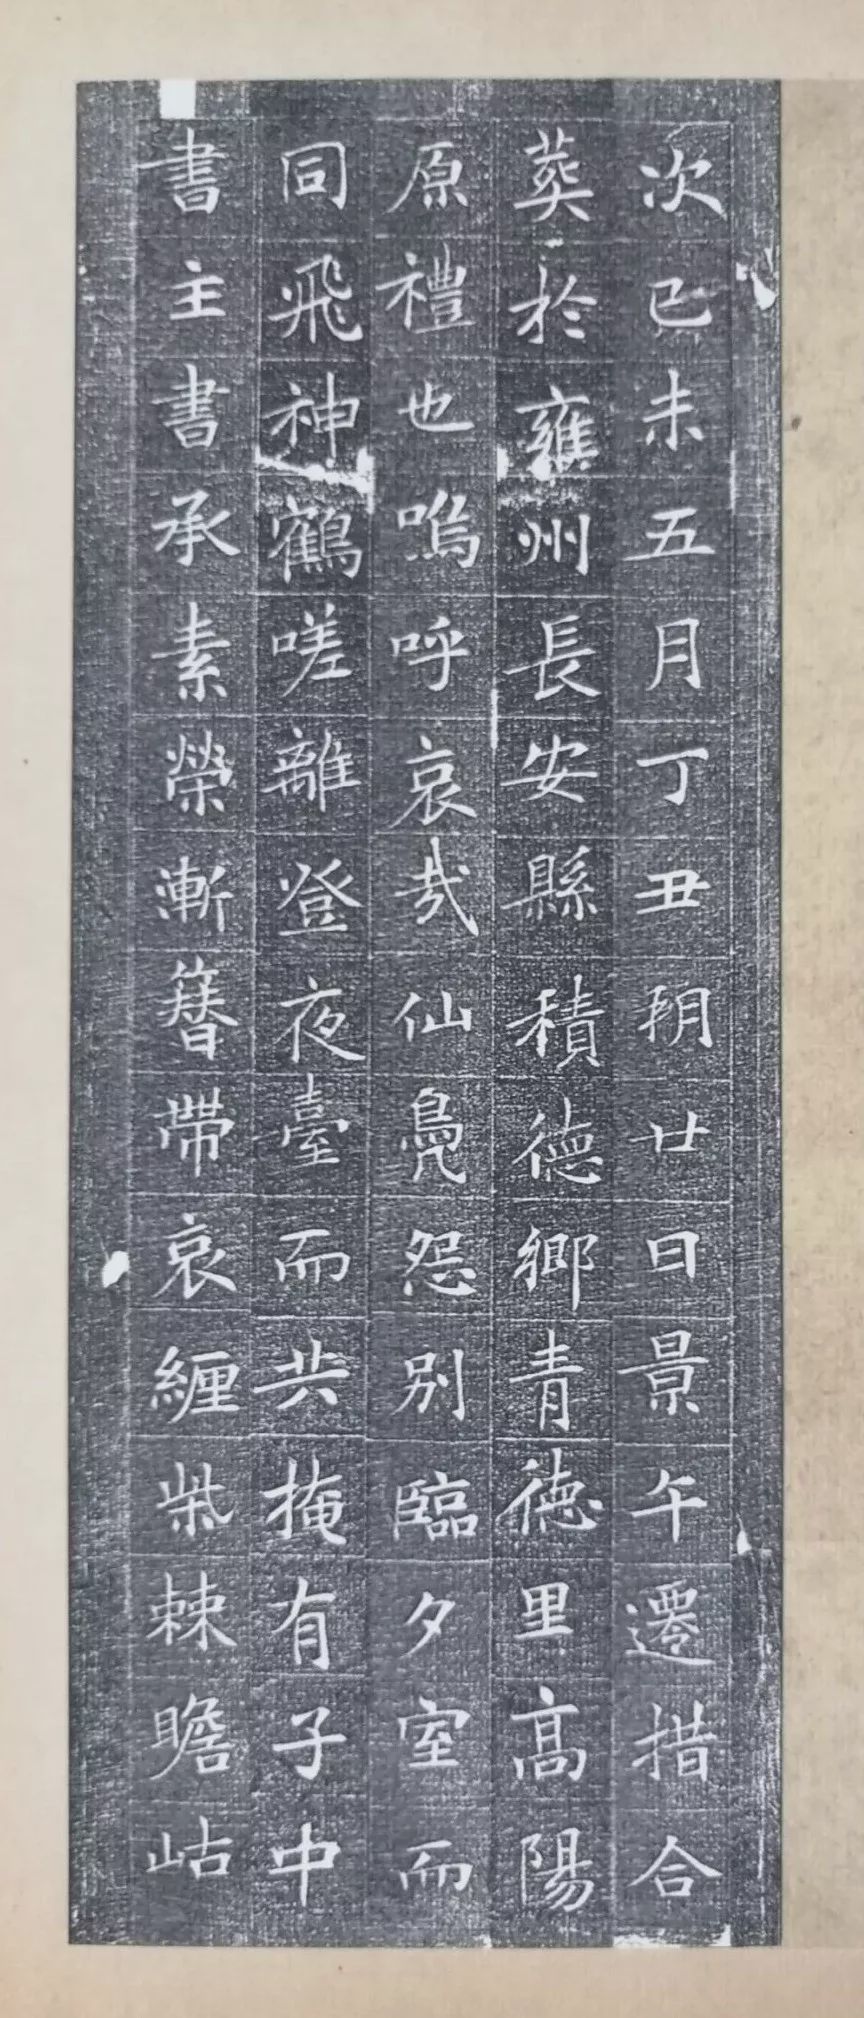 次己未五月丁丑朔廿日景午遷措合
葬於雍州長安縣積德鄉青德里高陽
原禮也嗚呼哀哉仙鳧怨別臨夕室而
同飛神鶴嗟離登夜臺而共掩有子中
書主書承素榮漸簪帶哀纏柴棘瞻岵